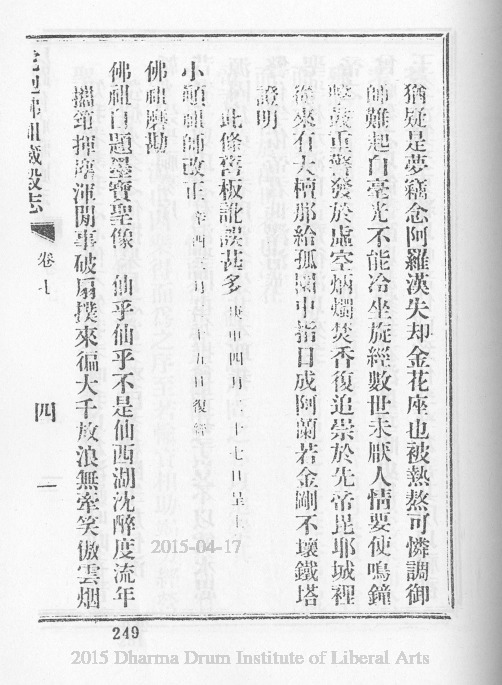 猶疑是夢竊念阿羅漢失却金花座也被熱熬可憐調御
師難起白毫光不能冷坐旋經數世未厭人情要使鳴鐘
擊鼓重警發於虛空炳燭焚香復追崇於先帝毘耶城裡
從來有大檀那給孤園中指日成阿蘭若金剛不壞鐵塔
證明
此條舊板訛誤甚多庚申四月二十七日呈上
小顛祖師改正辛酉三月十五日復
佛祖磨勘
佛祖自題墨寶聖像 仙乎仙乎不是仙西湖沈醉度流年
攜筇揮塵渾閒事破扇撲來徧大千放浪無牽笑傲雲烟
虎跑佛祖藏殿志
卷七
四一
249
2015-04-17
2015 Dharma Drum Institute of Liberal Arts